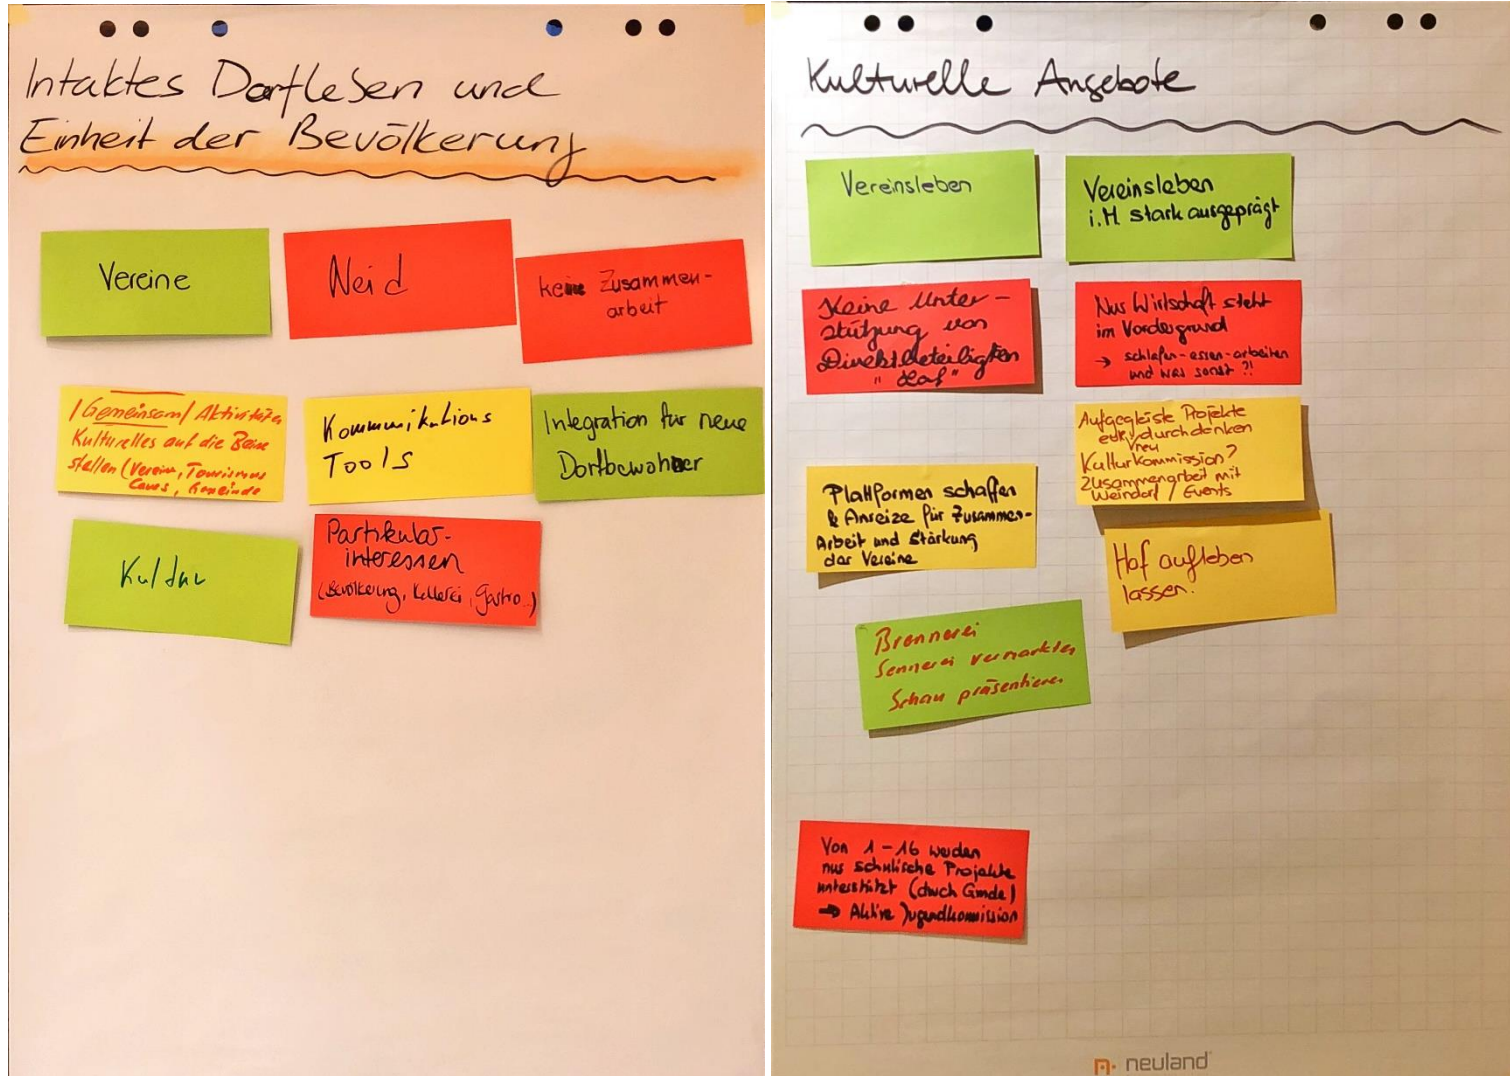 Intaktes Dorfleben und
Einheit der Bevölkerung
Vereine
Neid
keine Zusammen-
arbeit
/Gemeinsam/ Aktivitäten
Kulturelles auf die Beine
stellen (Vereine, Tourismus
Caves, Gemeinde
Kommunikations
Tools
Integration für neue
Dorfbewohner
Kultur
Partikular-
interessen
(Bevölkerung, Kellerei, Gastro..)
Kulturelle Angebote
Vereinsleben
Vereinsleben
i.M. stark ausgeprägt
Keine Unter-
stützung von
Direktbeteiligten
"Hof"
Nur Wirtschaft steht
im Vordergrund
→ schlafen-essen-arbeiten
und was sonst?!
Plattformen schaffen
& Anreize für Zusammen-
Arbeit und Stärkung
der Vereine
Aufgegleiste Projekte
evtl. neu durchdenken
Kulturkommission?
Zusammenarbeit mit
Weindorf / Events
Hof aufleben
lassen.
Brennerei
Sennerei vermarkten
Schau präsentieren
Von 1-16 werden
nur schulische Projekte
unterstützt (durch Gmde)
→ Aktive Jugendkommission
neuland